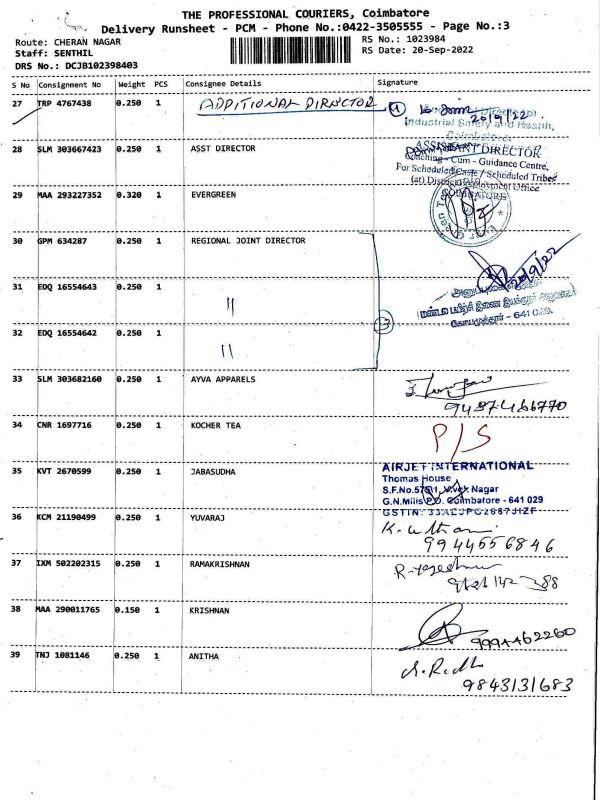 THE PROFESSIONAL COURIERS, Coimbatore
Delivery Runsheet - PCM - Phone No.:0422-3505555 - Page No.:3
Route: CHERAN NAGAR
Staff: SENTHIL
DRS No.: DCJB102398403
RS No.: 1023984
RS Date: 20-Sep-2022
S No Consignment No Weight PCS Consignee Details Signature
27 TRP 4767438 0.250 1 ADDITIONAL DIRECTOR
20/9/22
Industrial Safety and Health,
Coimbatore
28 SLM 303667423 0.250 1 ASST DIRECTOR
ASSISTANT DIRECTOR
Coaching - Cum - Guidance Centre,
For Scheduled Caste / Scheduled Tribes
(at) District Employment Office
COIMBATORE
29 MAA 293227352 0.320 1 EVERGREEN
30 GPM 634287 0.250 1 REGIONAL JOINT DIRECTOR
20/9/22
31 EDQ 16554643 0.250 1 "
3
கோயமுத்தூர் - 641 029.
32 EDQ 16554642 0.250 1 "
33 SLM 303682160 0.250 1 AYVA APPARELS
34 CNR 1697716 0.250 1 KOCHER TEA P/S
35 KVT 2670599 0.250 1 JABASUDHA
AIRJET INTERNATIONAL
Thomas House
Vivek Nagar
G.N.Mills P.O. Coimbatore - 641 029
36 KCM 21190499 0.250 1 YUVARAJ
9944556846
37 IXM 502202315 0.250 1 RAMAKRISHNAN
38 MAA 290011765 0.150 1 KRISHNAN
9994462260
39 TNJ 1081146 0.250 1 ANITHA
9843131683